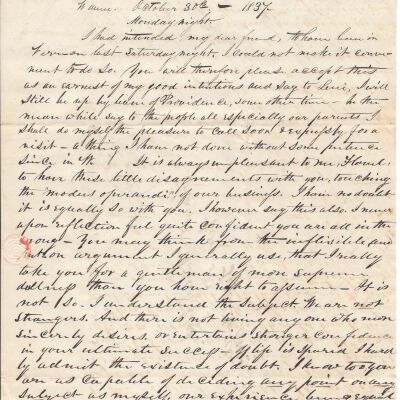 October 30th, - 1837.
Monday night.
I had intended my dear friend, to have been in
Vernon last Saturday night. I could not make it conve
nient to do so. You will therefore please accept this
as an earnest of my good intentions and say to Levi, I will
still be up by leave of Providence, some other time - In the
mean while say to the people all especially our parents I
shall do myself the pleasure to call soon expressly for a
visit - a thing I have not done without some pretence
since in It is always unpleasant to me,
to have these little disagreements with you, touching
the "modus operandi" of our business. I have no doubt
it is equally so with you. I however say this also. I never
upon reflection feel quite confident you are all in the
wrong - You may think from the inflexible and
argument I generally use, that I really
take you for a gentleman of more supreme
dullness than you have right to assume - It is
not so. I understand the subject We are not
strangers. And there is not living any one who more
sincerely desires, or entertains stronger confidence
in your ultimate success - if life is spared I hard
ly admit the existence of doubt. I know too you
are as capable of deciding any point on any
subject as myself, our experience